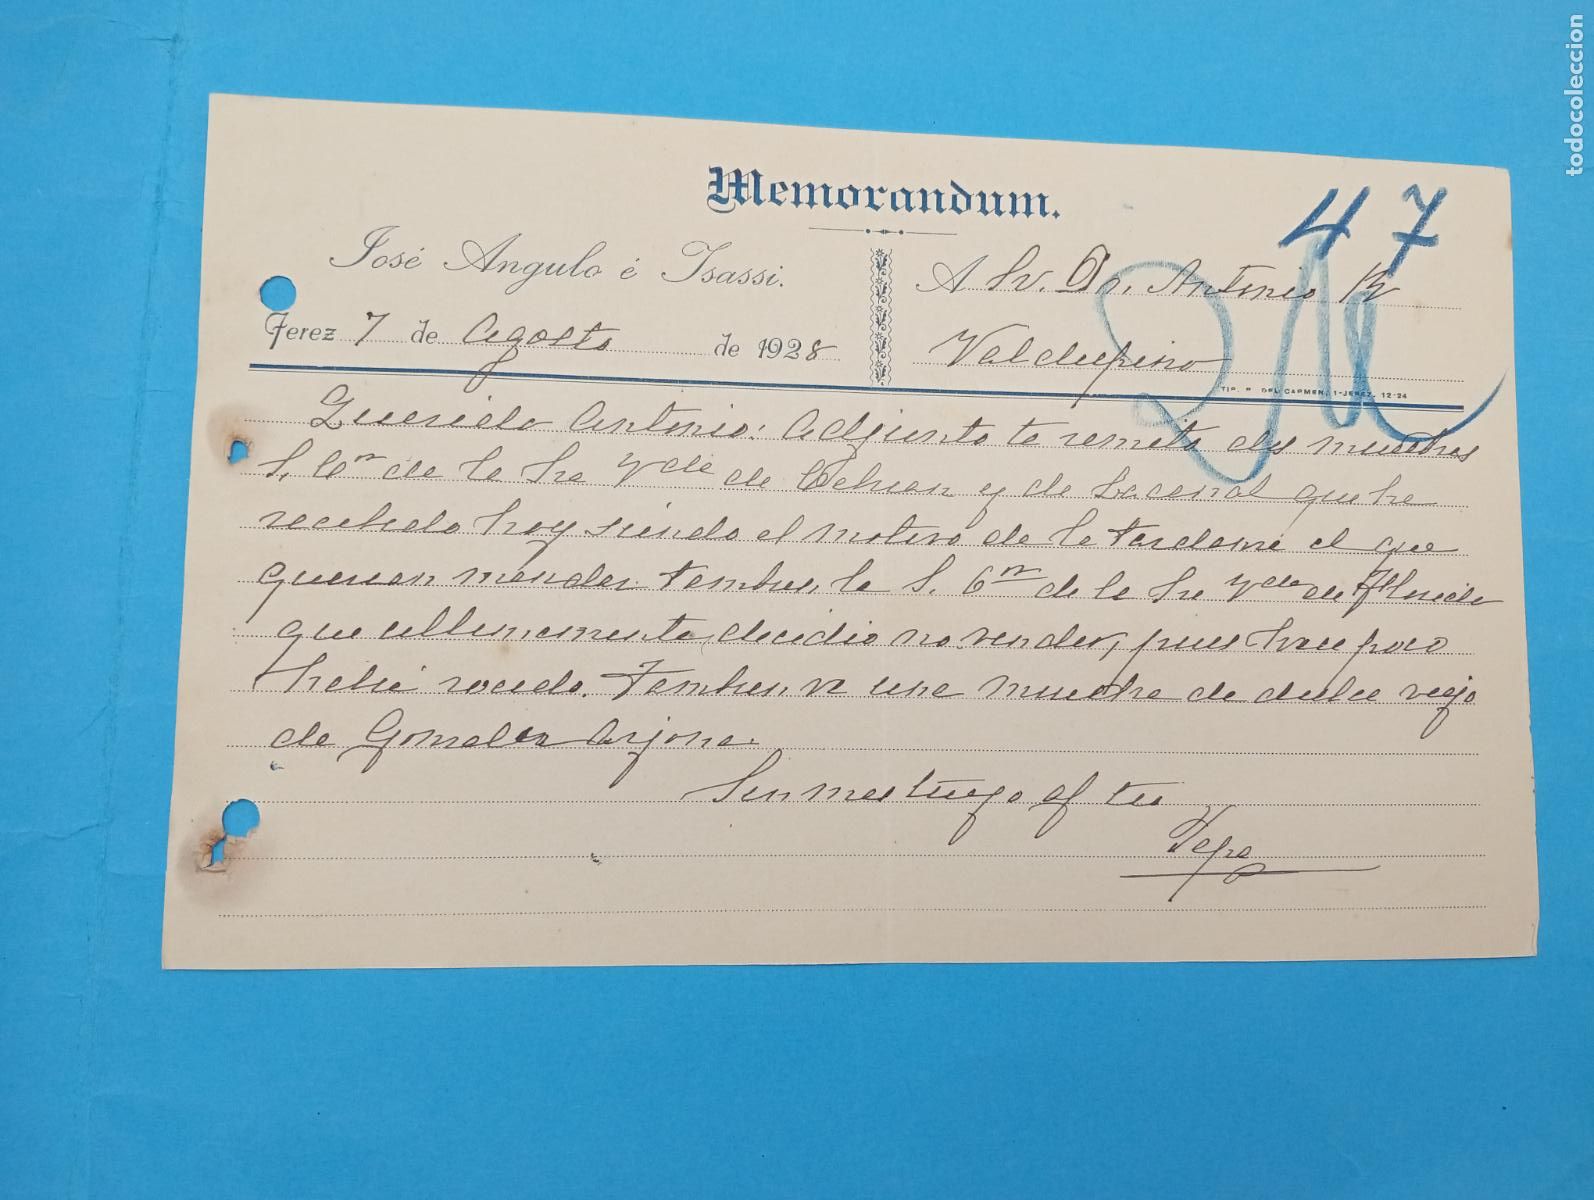 Memorandum.
47
José Angulo é Isassi.
A Sr. Dn. Antonio R
Jerez 7 de Agosto de 1928
Valdespino
TIP. P. DEL CARMEN, 1-JEREZ. 12-24
Querido Antonio: Adjunto te remito dos muestras
S. Cn de la Sra Vda de y de que he
recibido hoy siendo el motivo de la tardanza el que
querian mandar tambien la S. Cn de la Sra Vda de
que ultimamente decidio no vender, pues hace poco
habia rociado. Tambien va una muestra de dulce viejo
de Gonzalez Arjona.
Sin mas tuyo af tio
Pepe
todocoleccion